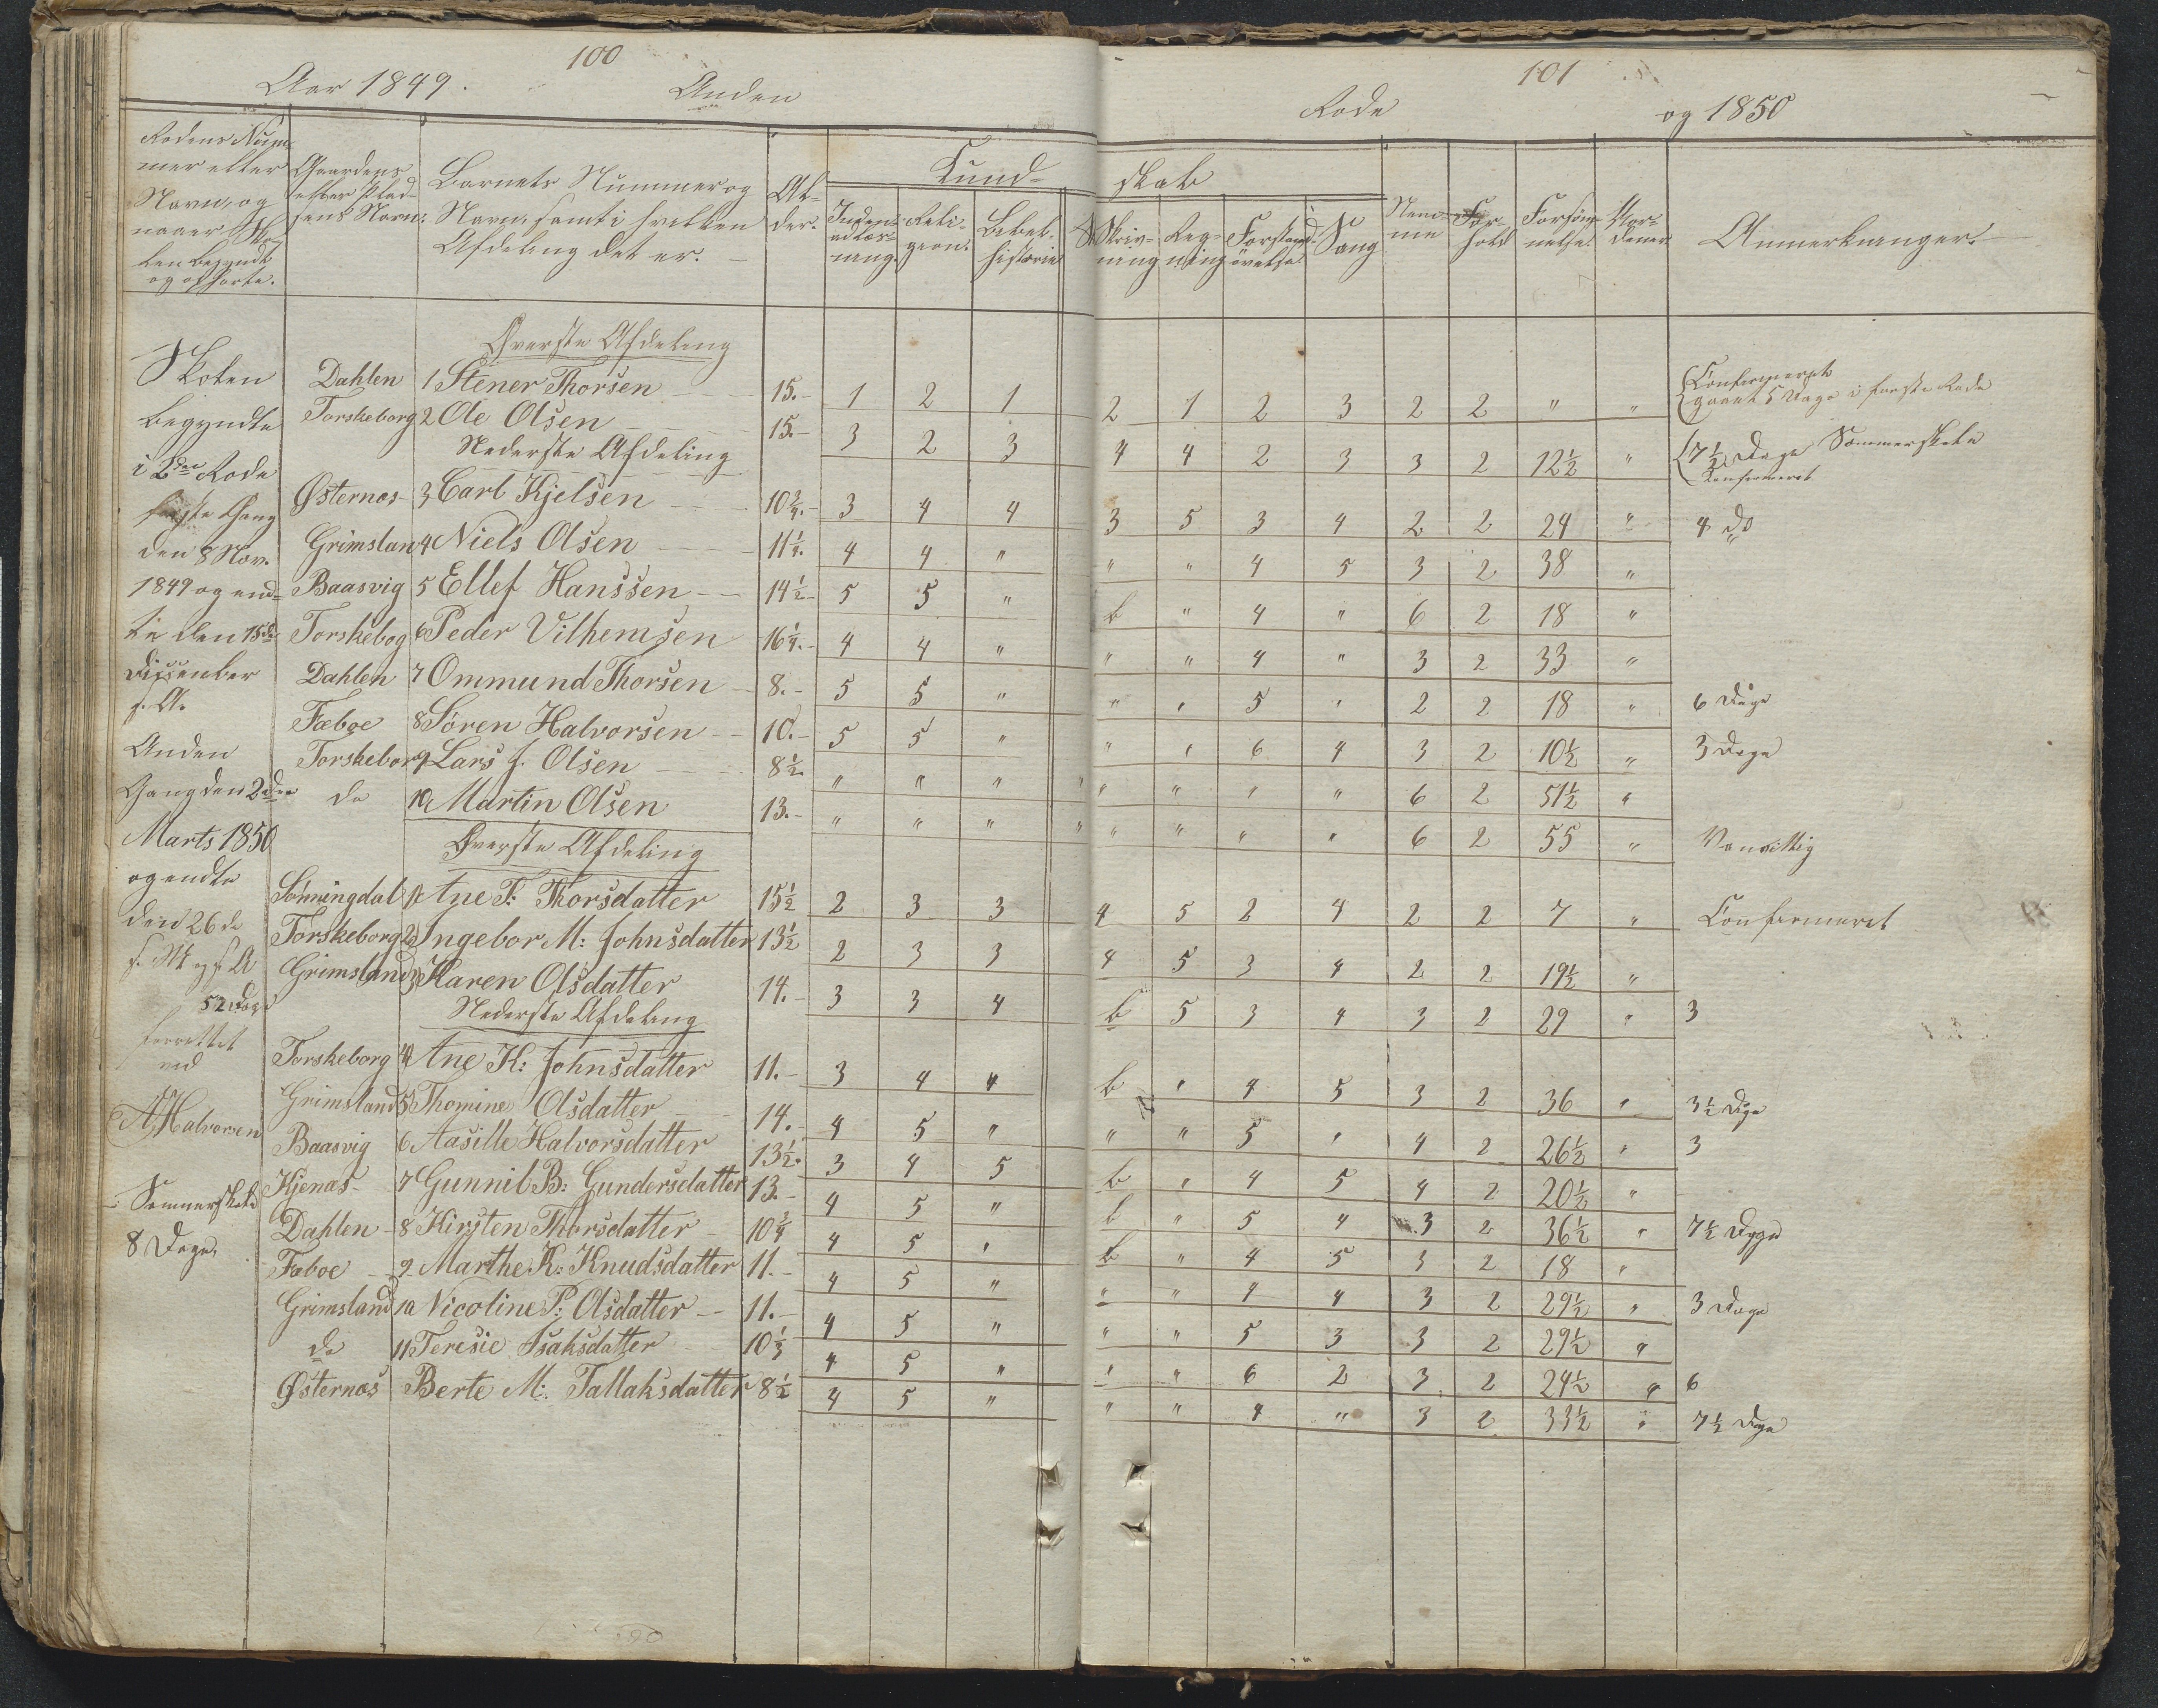 100
Aar 1849. Anden
101
Rode og 1850
Rodens Num-
mer eller
Navn, og
naaer Sko-
len begyndte
og ophørte.
Gaardens
eller Plad-
sens Navn.
Barnets Nummer og
Navn, samt i hvilken
Afdeling det er.
Al-
der.
Kund-
skab
Indenadlæs-
ning.
Reli-
gion.
Bibel-
historie
Skriv-
ning
Reg-
ning
Forstands-
øvelse
Sang
Nem-
me
For-
hold
Forsøm-
melse.
Anmerkninger.
Øverste Afdeling
Dahlen 1 Stener Thorsen 15.- 1 2 1 2 1 2 3 2 2 " " Confirmeret
gaaet 5 Dage i første Rode
Torskeborg 2 Ole Olsen 15.- 3 2 3 4 4 2 3 3 2 12½ " 7½ Dage Sommerskole
Konfirmeret
Nederste Afdeling
Østernæs 3 Carl Kjelsen 10¾.- 3 4 4 3 5 3 4 2 2 24 " 4 do
Grimslan 4 Niels Olsen 11¼.- 4 4 " " " 4 5 3 2 38 "
Baasvig 5 Ellef Hanssen 14½- 5 5 " b " 4 " 6 2 18 "
Torskebog 6 Peder Vilhemsen 16¼.- 4 4 " " " 4 " 3 2 33 "
Dahlen 7 Ommund Thorsen 8.- 5 5 " " " 5 " 2 2 18 " 6 Dage
Fæboe 8 Søren Halvorsen 10.- 5 5 " " " 6 4 3 2 10½ " 3 Dage
Torskeborg 9 Lars J. Olsen 8½. " " " " " " " 6 2 51½ "
do 10 Martin Olsen 13.- " " " " " " " 6 2 55 " Vanvittig
Øverste Afdeling
Sønningdal 1 Ane F: Thorsdatter 15½ 2 3 3 4 5 2 4 2 2 7 " Confirmeret
Torskeborg 2 Ingebor M: Johnsdatter 13½ 2 3 3 4 5 3 4 2 2 19½ "
Grimsland 3 Karen Olsdatter 14.- 3 3 4 b 5 3 4 3 2 29 " 3
Nederste Afdeling
Torskeborg 4 Ane K: Johnsdatter 11.- 3 4 4 b " 4 5 3 2 36 " 3½ Dage
Grimsland 5 Thomine Olsdatter 14.- 4 5 " " " 5 " 4 2 26½ " 3
Baasvig 6 Aasille Halvorsdatter 13½. 3 4 5 b " 4 5 4 2 20½ "
Kjenas 7 Gunnil B: Gundersdatter 13.- 4 5 " b " 5 4 3 2 36½ " 7½ Dage
Dahlen 8 Kirsten Thorsdatter 10¾ 4 5 " b " 4 5 3 2 18 "
Fæboe 9 Marthe K: Knudsdatter 11.- 4 5 " " " 4 4 3 2 29½ " 3 Dage
Grimsland 10 Nicoline P: Olsdatter 11.- 4 5 " " " 5 3 3 2 29½ "
do 11 Teresie Isaksdatter 10⅓ 4 5 " " " 6 2 3 2 24½ " 6
Østernæs Berte M: Tallaksdatter 8½ 4 5 " " " 4 " 3 2 33½ " 7½ Dage
Skolen
begyndte
i 2den Rode
første Gang
den 8 Nov.
1849 og end-
te den 15de
Dissenber
s. A.
Anden
Gang den 2den
Marts 1850
og endte
den 26de
s. M og s. A
52 Dage
forrettet
ved
A Halvorsen
Sommerskole
8 Dage.